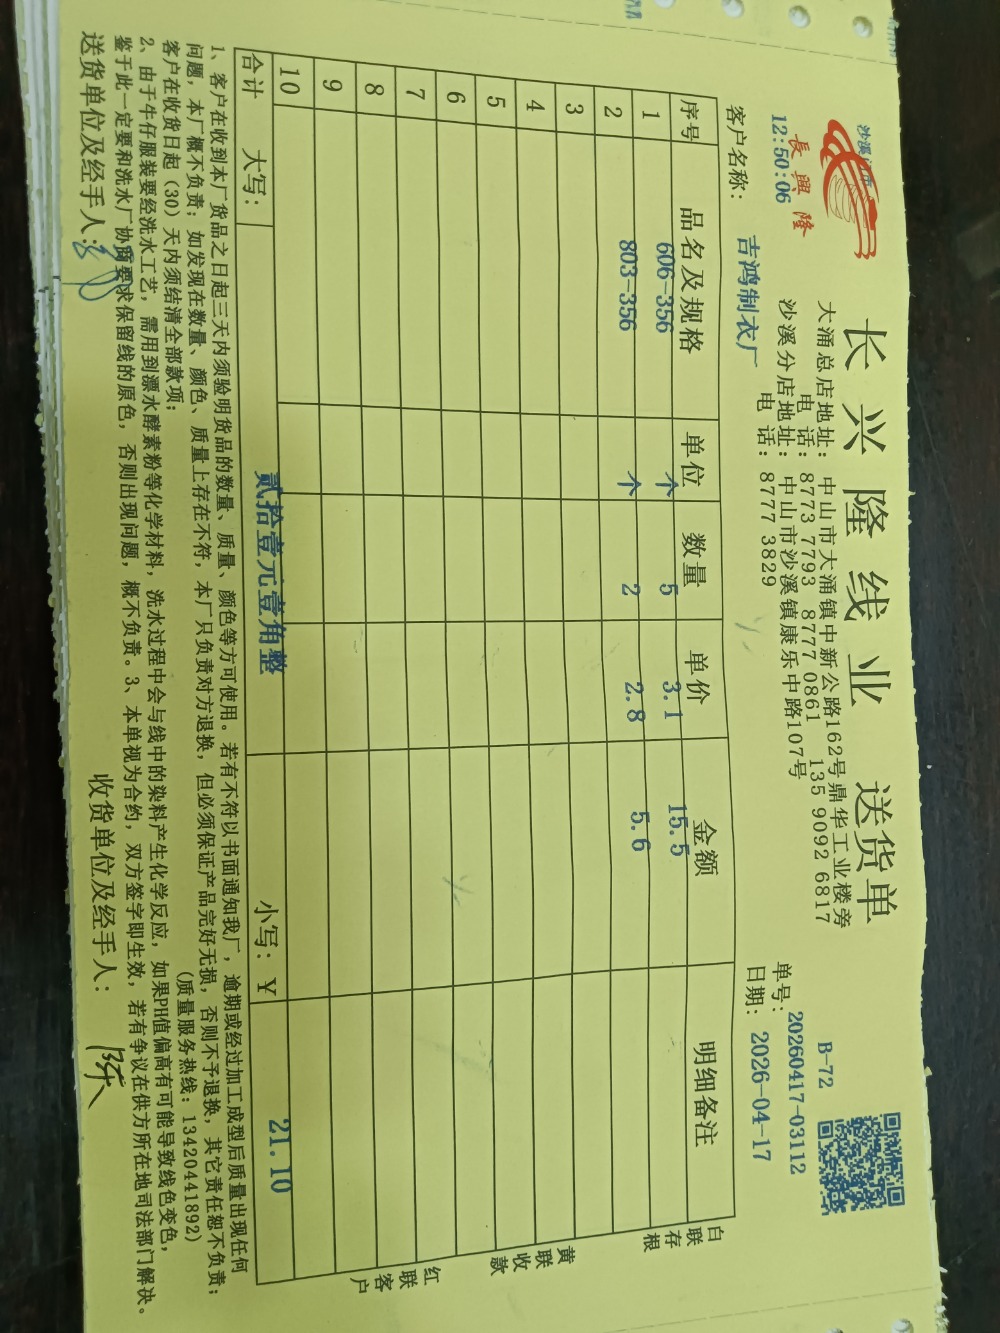 沙溪门市
12:50:06
長興隆
长兴隆线业 送货单
大涌总店地址: 中山市大涌镇中新公路162号鼎华工业楼旁
电 话: 8773 7793 8777 0861 135 9092 6817
沙溪分店地址: 中山市沙溪镇康乐中路107号
电 话: 8777 3829
B-72
单号: 20260417-03112
日期: 2026-04-17
客户名称: 吉鸿制衣厂
序号 品名及规格 单位 数量 单价 金额 明细备注
1 606-356 个 5 3.1 15.5
2 803-356 个 2 2.8 5.6
3
4
5
6
7
8
9
10
合计 大写: 贰拾壹元壹角整 小写: ¥ 21.10
白联存根
黄联收款
红联客户
1、客户在收到本厂货品之日起三天内须验明货品的数量、质量、颜色等方可使用。若有不符以书面通知我厂，逾期或经过加工成型后质量出现任何
问题，本厂概不负责；如发现在数量、颜色、质量上存在不符，本厂只负责对方退换，但必须保证产品完好无损，否则不予退换，其它责任恕不负责；
客户在收货日起（30）天内须结清全部款项；
(质量服务热线: 13420441892)
2、由于牛仔服装要经洗水工艺，需用到漂水酵素粉等化学材料，洗水过程中会与线中的染料产生化学反应，如果PH值偏高有可能导致线色变色，
鉴于此一定要和洗水厂协商要求保留线的原色，否则出现问题，概不负责。3、本单视为合约，双方签字即生效，若有争议在供方所在地司法部门解决。
送货单位及经手人: 收货单位及经手人: